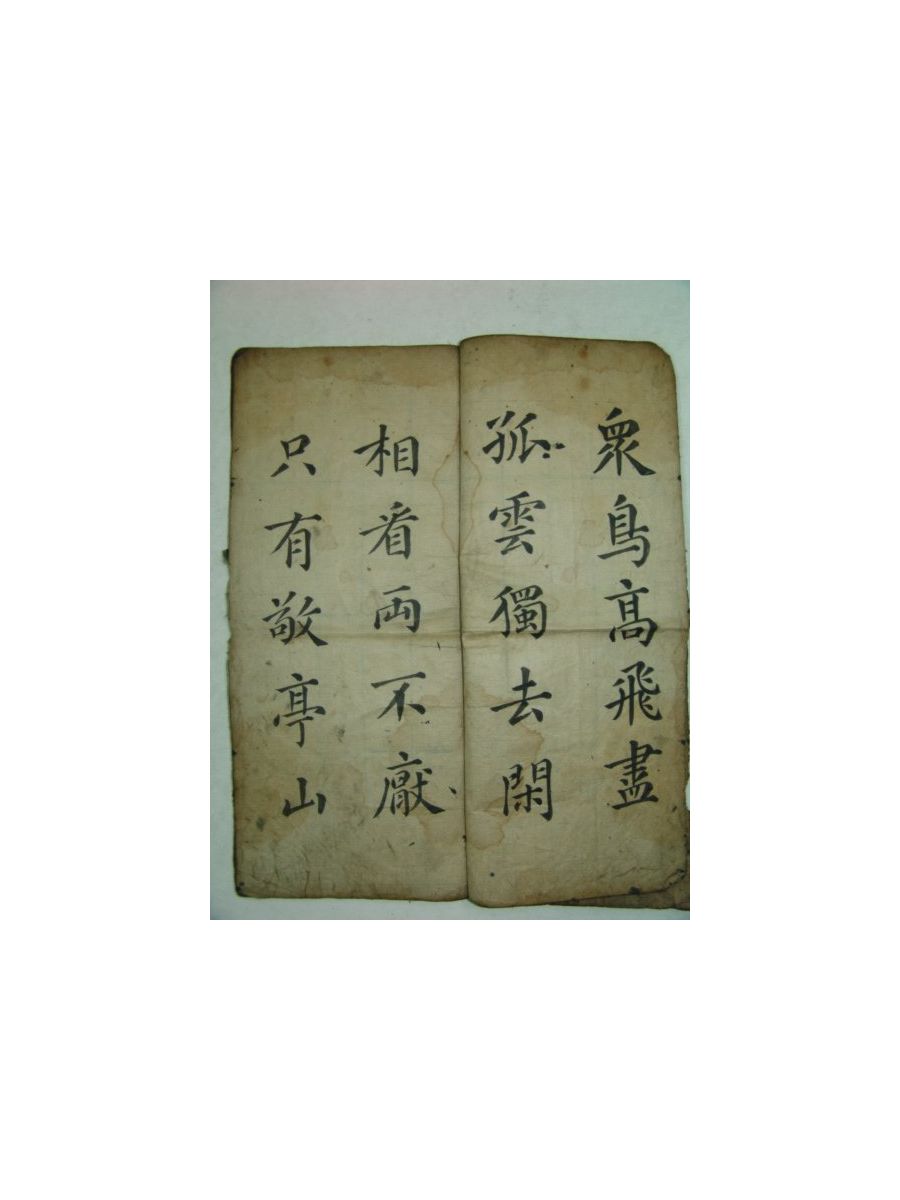 衆鳥高飛盡
孤雲獨去閑
相看兩不厭
只有敬亭山